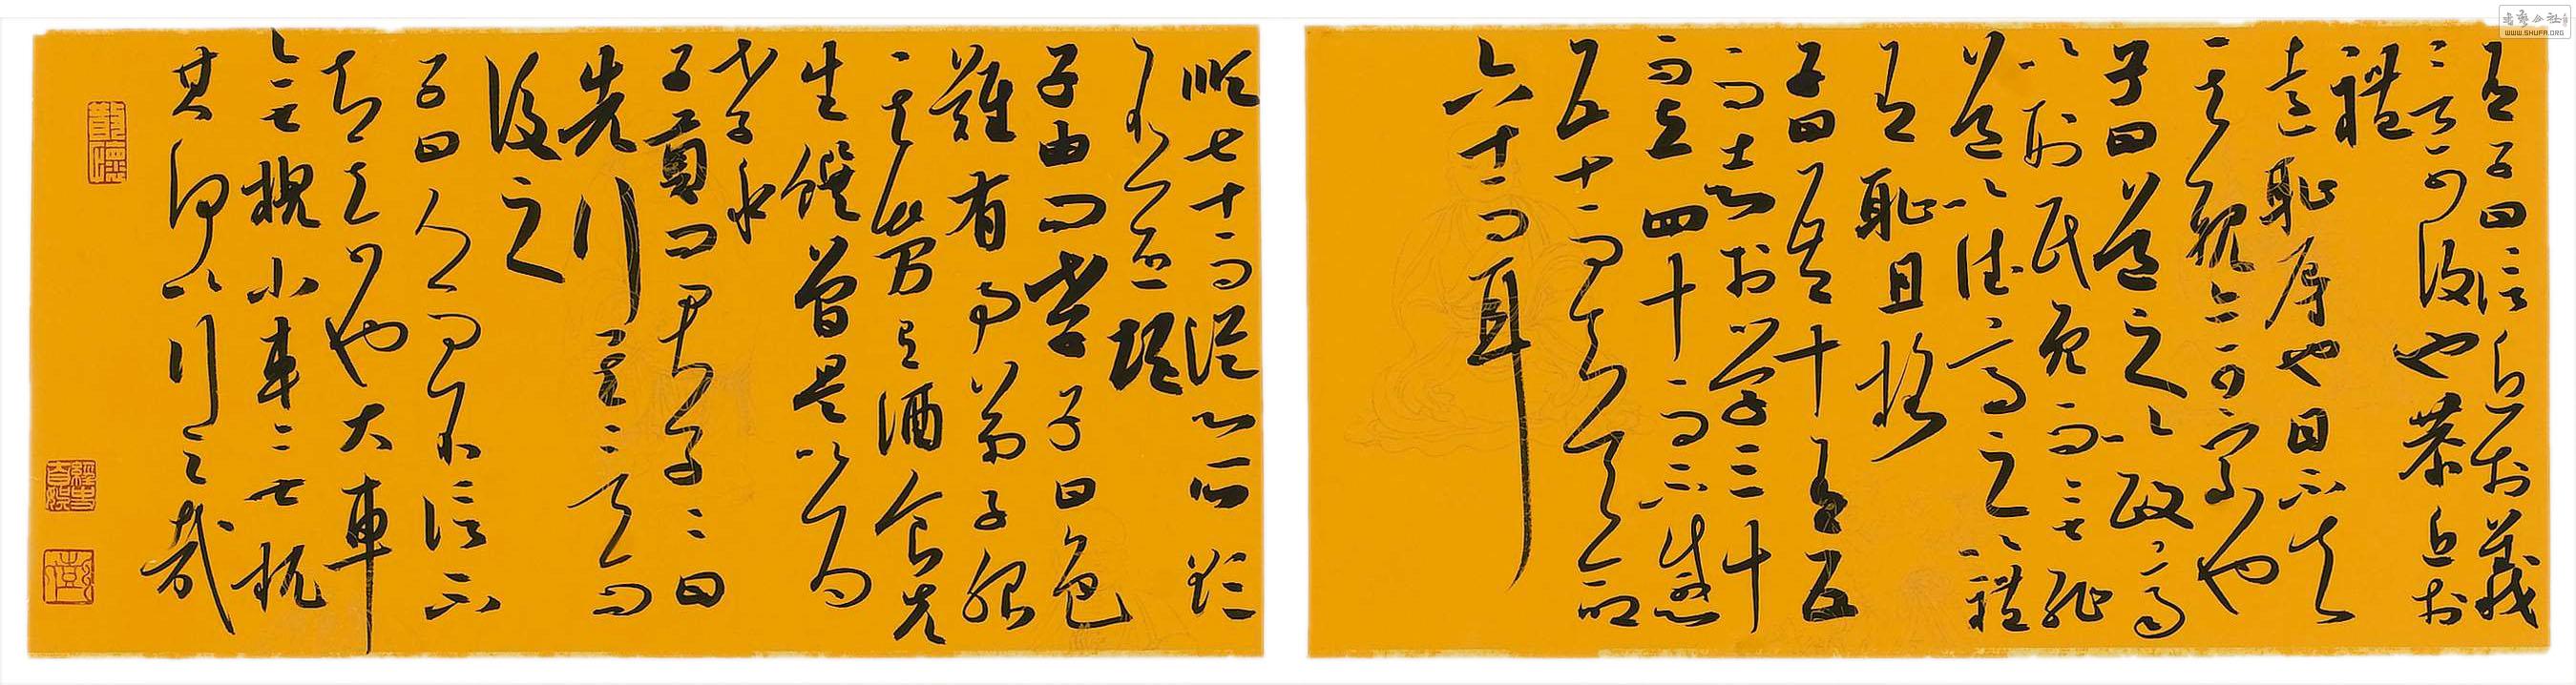 有子曰信近於義
言可復也恭近於
禮
遠恥辱也因不失
其親亦可宗也
子曰道之以政齊
之以刑民免而無恥
道之以德齊之以禮
有恥且格
子曰吾十有五
而志於学三十
而立四十而不惑
五十而知天命
六十而耳
順七十而從心所欲
不踰矩
子由问孝子曰色
難有事弟子服
其勞有酒食先
生饌曾是以为
孝乎
子貢问君子子曰
先行其言而
後從之
子曰人而無信不
知其可也大車
無輗小車無軏
其何以行之哉
WWW.SHUFA.ORG